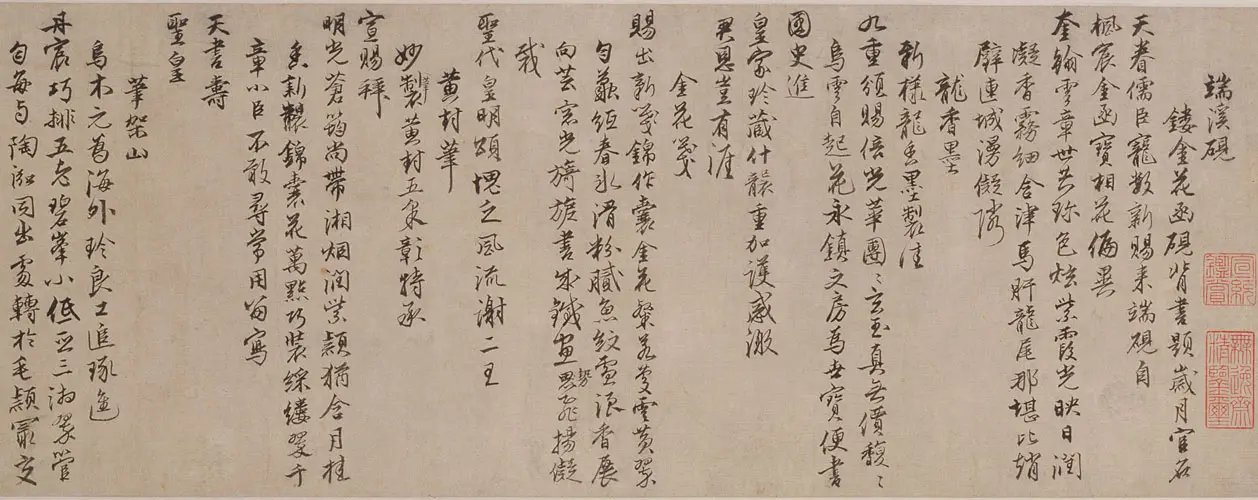 端溪硯
鏤金花函硯背書題歲月官名
天眷儒臣寵數新賜来端硯自
楓宸金函寶相花偏異
奎翰雲章世共珎色炫紫霞光映日潤
凝香霧細含津馬肝龍尾那堪比趙
璧連城湧儗隣
龍香墨
新様龍香墨製佳
九重頒賜倍光華團〻玄玉真無價馥〻
烏雲自起花永鎮文房為世寶便書
國史進
皇家珎藏什襲重加護感激
異恩豈有涯
金花箋
賜出新箋錦作囊金花粲雲黄翠
勻春冰滑粉膩魚紋雪浪香展
向芸窓光旖旎書成鐵畫勢思飛揚儗
裁
聖代皇明頌愧乏風流謝二王
黄封筆
妙製黄封五采彰特承
宣賜拜
明光蒼筠尚帶湘烟润紫穎猶含月桂
香新錦囊花萬點巧裝綵縷翠千
章小臣不敢尋常用留寫
天書壽
聖皇
筆架山
烏木元為海外珎良工追琢進
丹宸巧排五老碧峯小低亞三湘翠管
勻每与陶泓同出處轉於毛穎最交
宣統鑑賞
無逸齋精鑒璽